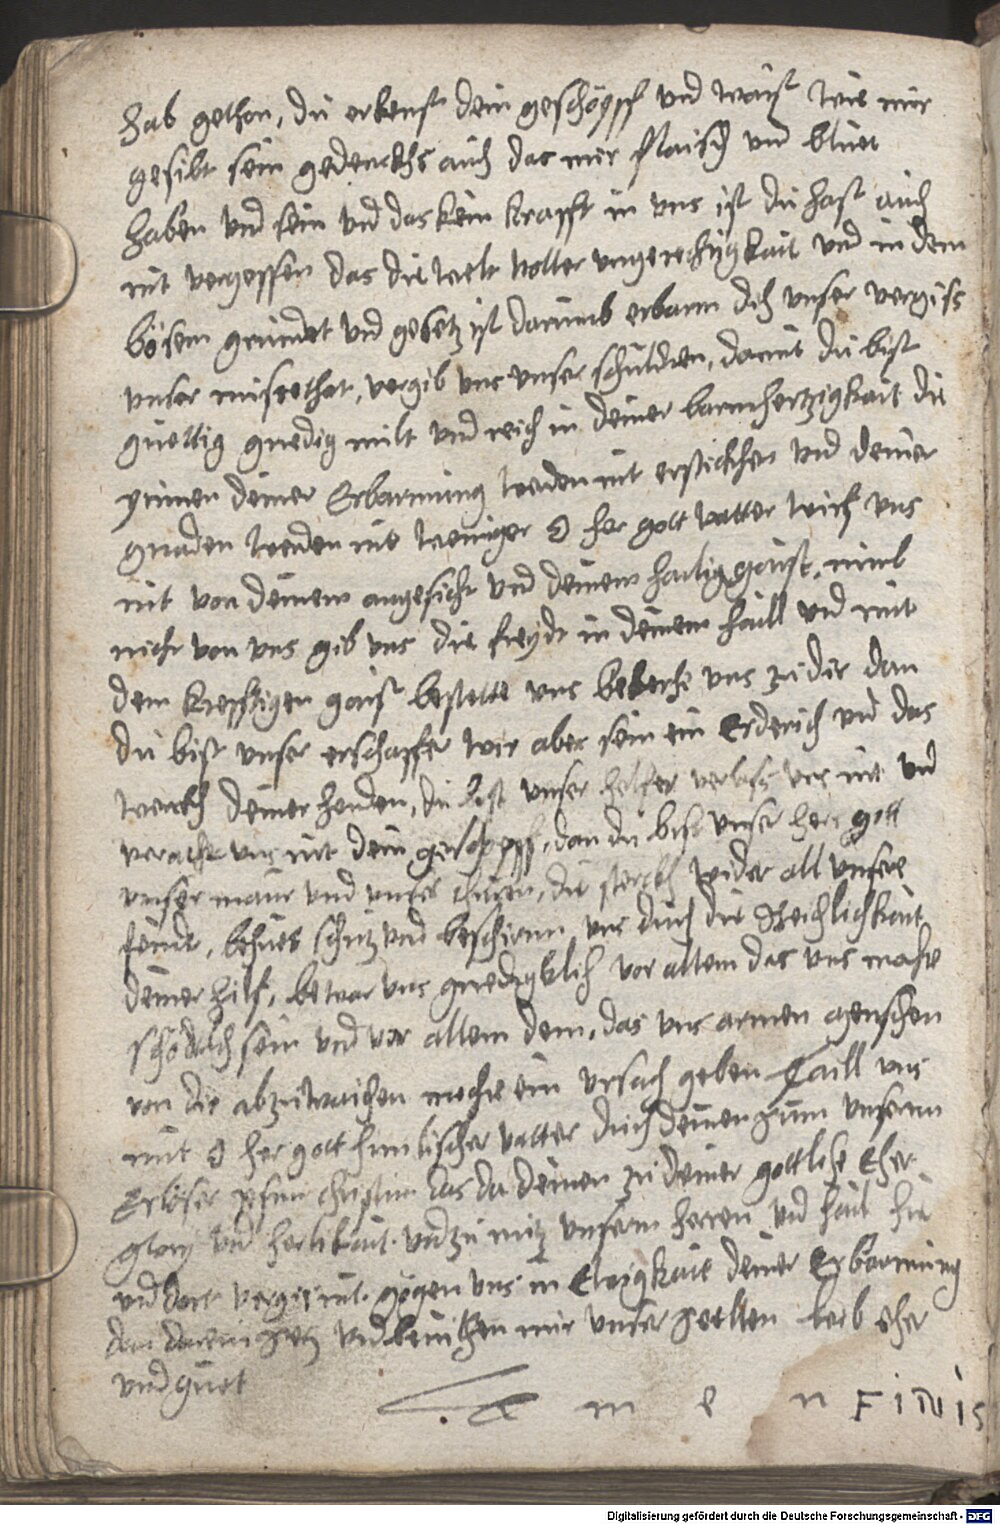 hab gethon, du erkenst dein geschöpff vnd waist wie mir
gesibt sein gedenckhs auch das mir flaisch vnd bluet
haben vnd sein vnd das kein krafft in vns ist du hast auch
nit vergessen das die welt voller vngerechtigkait vnd in dem
bösem gründet vnd gesetz ist darumb erbarm dich vnser vergiss
vnser missethat, vergib vns vnser schulden, damit du bist
guettig gnedig milt vnd reich in deiner barmhertzigkait die
ynnen deiner Erbarmung werden nit ersticken vnd deiner
gnaden werden nit weniger O her gott vatter wirf vns
nit von deinem angesicht vnd deinem hailig gaist, nimb
nicht von vns gib vns die freydt in deinem haill vnd mit
dem krefftigen gaist bestette vns bekerhe vns zu dir dan
du bist vnser erschaffer wir aber sein ein Erderich vnd das
werckh deiner henden, du bist vnser helfer verlass vns nit vnd
veracht vns nit dein geschöpff, dan du bist vnser herr gott
vnser maur vnd vnser thuren, die sterckh wider all vnsere
feindt, behüet schutz vnd beschirm vns duch die Reichlichkait
deiner hilf, bewar vns gnedigklich vor allem das vns mohte
schödlich sein vnd vor allem dem, das vns armen menschen
von dir abzuwaichen mechte ein vrsach geben haill vns
mit O her gott himlischer vatter durch deinen sunn vnserm
Erlöser Jesum christum das da deinen zu deiner gottliche Eher
glory vnd herlikait vnd zu nutz vnserm herren vnd hail hie
vnd dort vergis nit gögen vns in Ewigkait deiner Erbarmung
dan darein setz vnd beuelhen mir vnser seellen leib Eher
vnd guet
A m e n FiNis
Digitalisierung gefördert durch die Deutsche Forschungsgemeinschaft - DFG